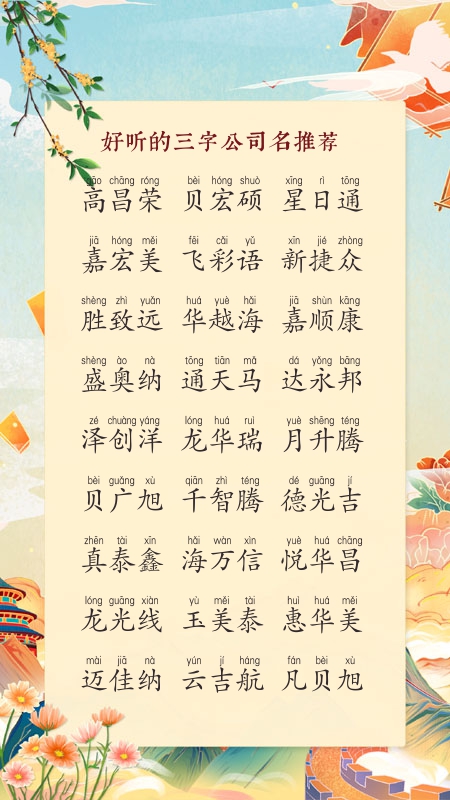 好听的三字公司名推荐
gāo chāng róng bèi hóng shuò xīng rì tōng
高昌荣 贝宏硕 星日通
jiā hóng měi fēi cǎi yǔ xīn jié zhòng
嘉宏美 飞彩语 新捷众
shèng zhì yuǎn huá yuè hǎi jiā shùn kāng
胜致远 华越海 嘉顺康
shèng ào nà tōng tiān mǎ dá yǒng bāng
盛奥纳 通天马 达永邦
zé chuàng yáng lóng huá ruì yuè shēng téng
泽创洋 龙华瑞 月升腾
bèi guǎng xù qiān zhì téng dé guāng jí
贝广旭 千智腾 德光吉
zhēn tài xīn hǎi wàn xìn yuè huá chāng
真泰鑫 海万信 悦华昌
lóng guāng xiàn yù měi tài huì huá měi
龙光线 玉美泰 惠华美
mài jiā nà yún jí háng fán bèi xù
迈佳纳 云吉航 凡贝旭